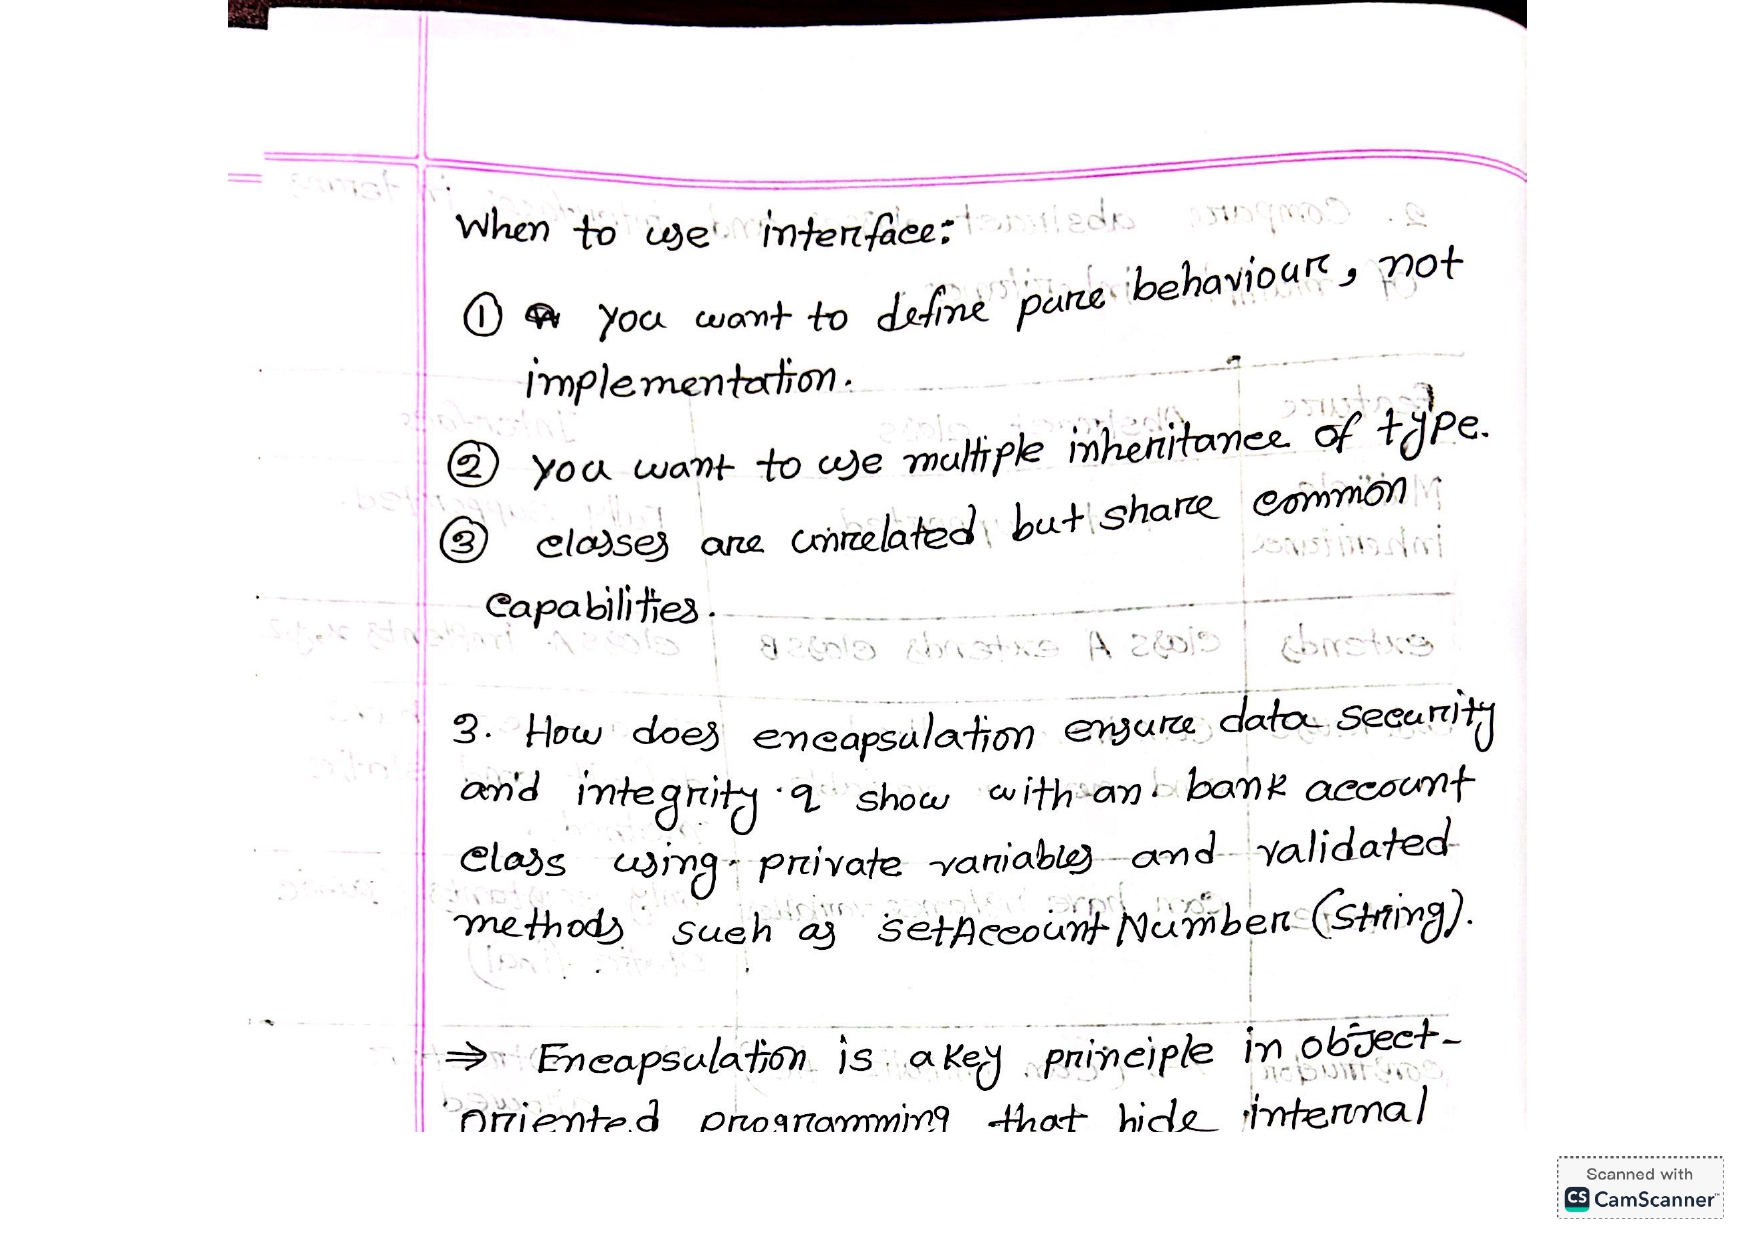 When to use interface:
① you want to define pure behaviour, not
implementation.
② you want to use multiple inheritance of type.
③ classes are unrelated but share common
capabilities.
3. How does encapsulation ensure data security
and integrity ? show with an bank account
class using private variables and validated
methods such as setAccountNumber (String).
⇒ Encapsulation is a key principle in object-
oriented programming that hide internal
Scanned with
CS CamScanner